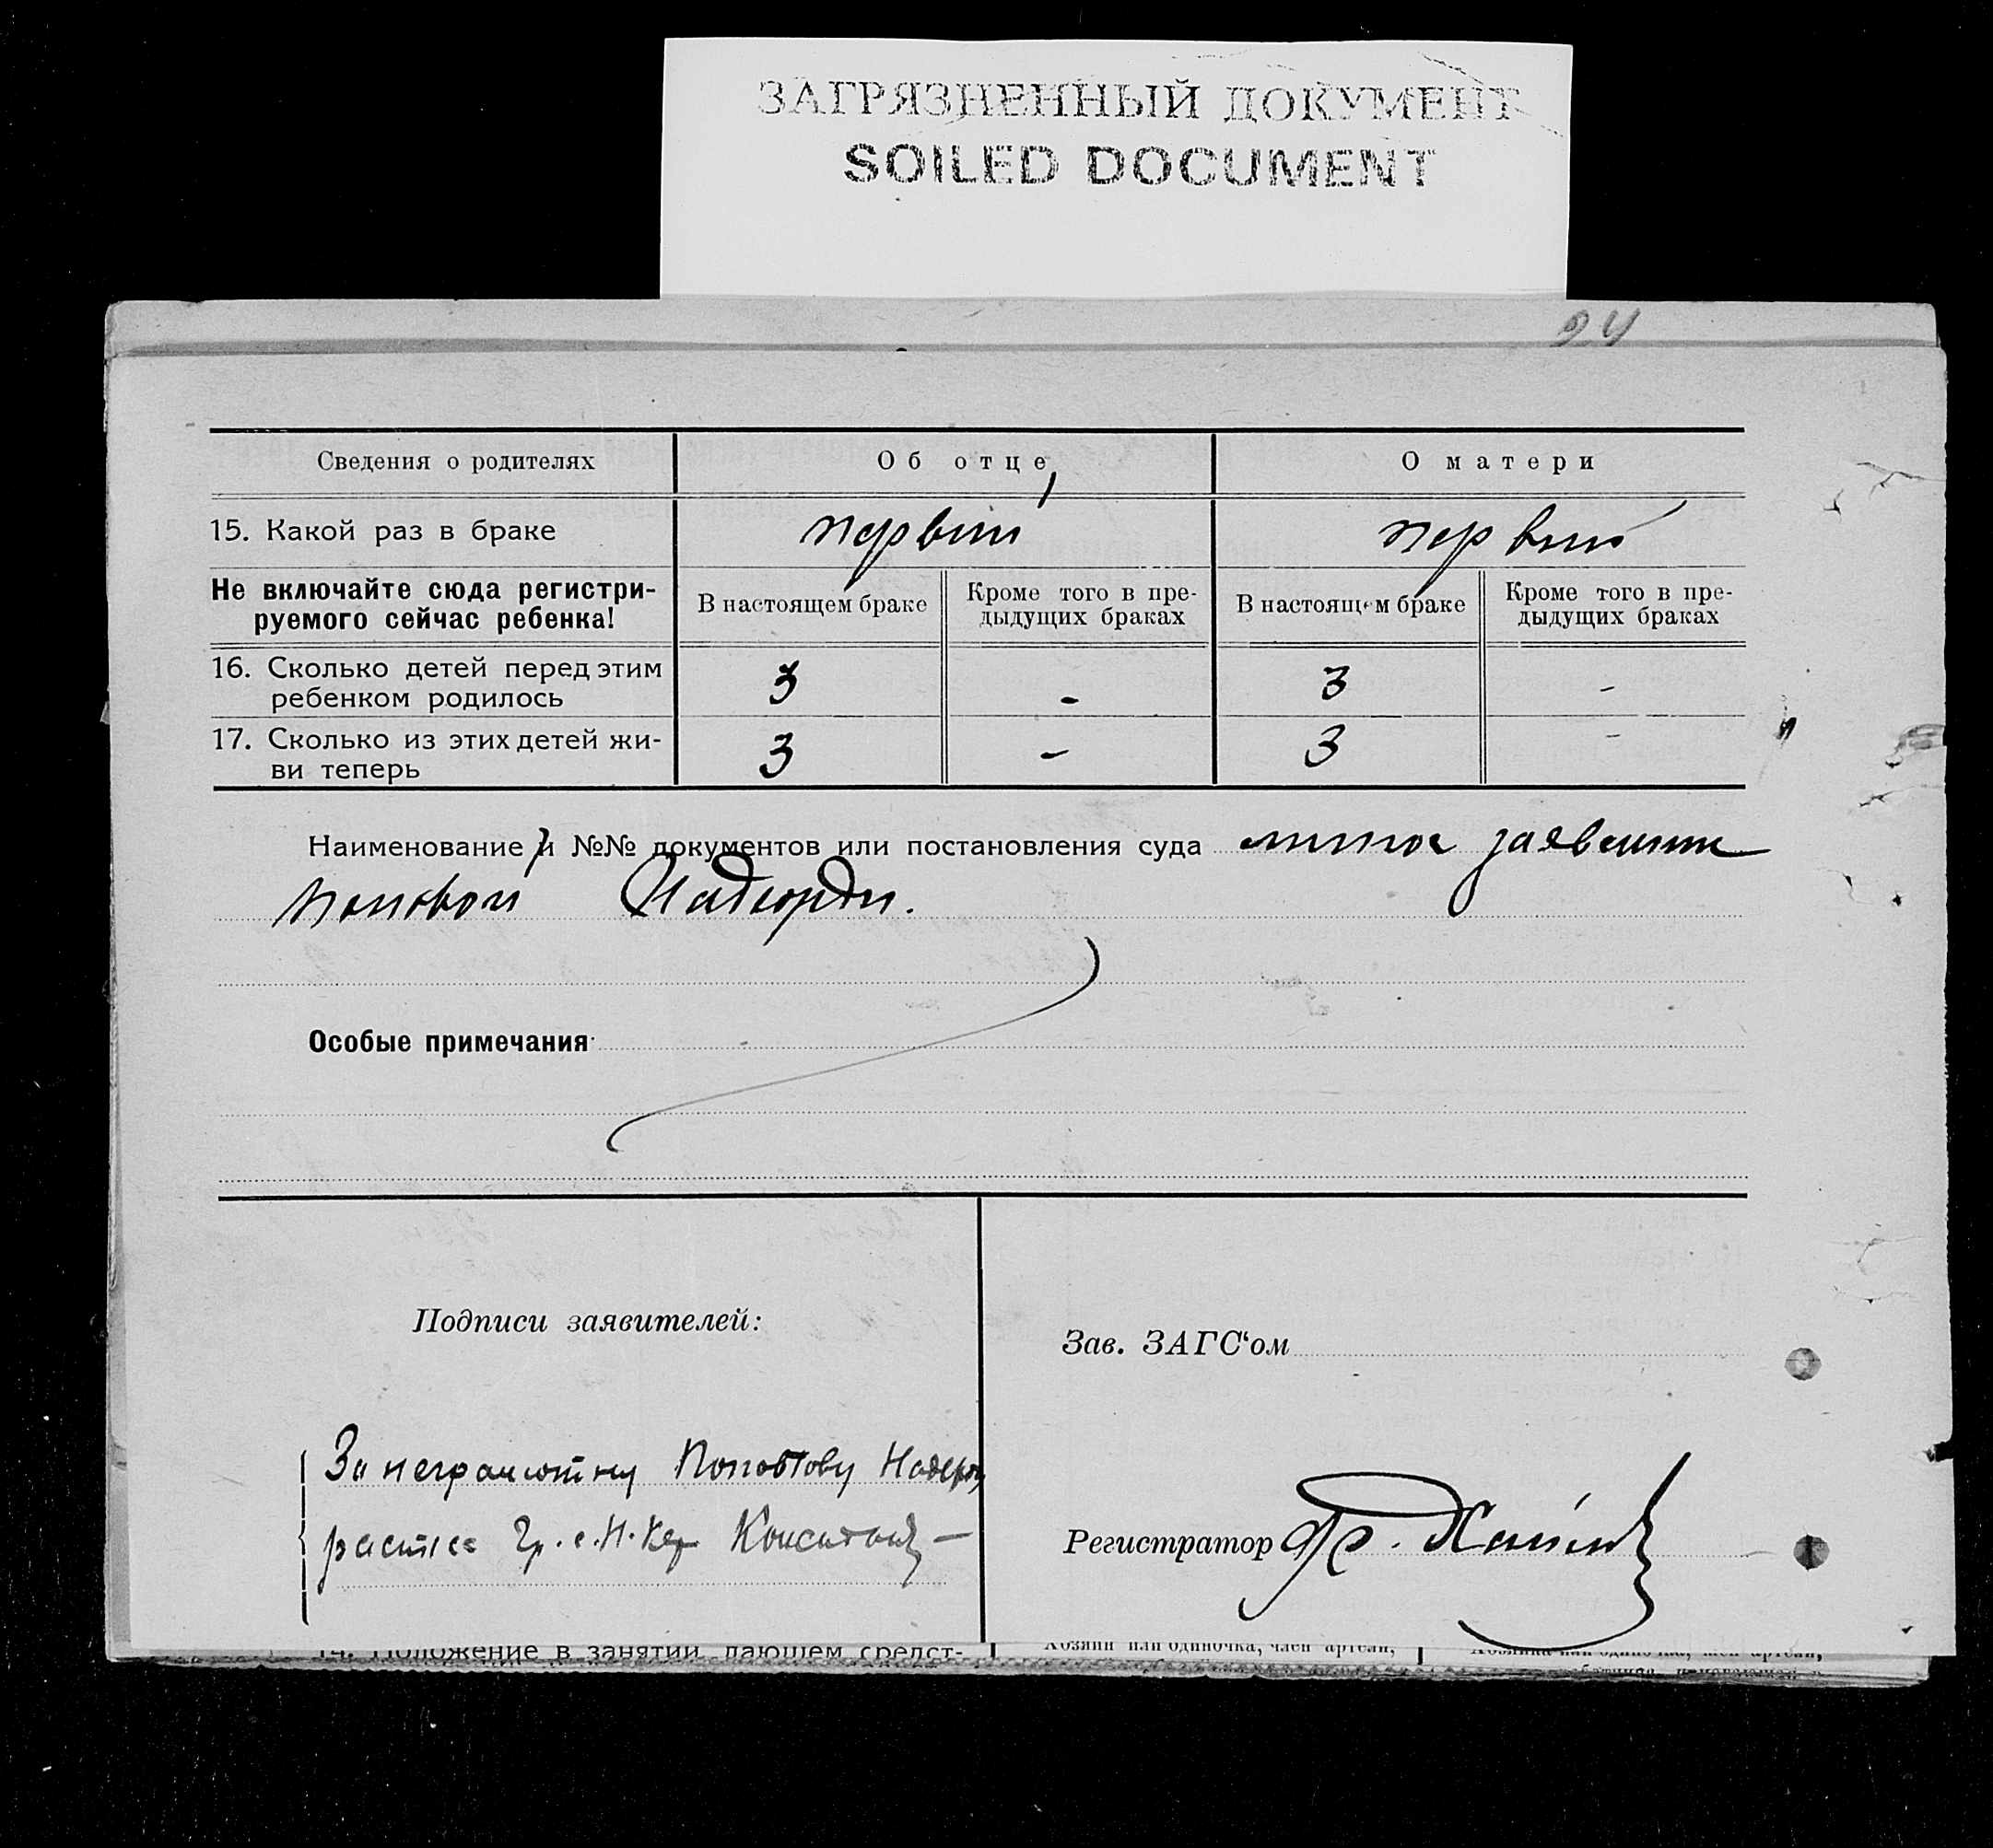 ЗАГРЯЗНЕННЫЙ ДОКУМЕНТ
SOILED DOCUMENT
24
Сведения о родителях Об отце О матери
15. Какой раз в браке первый первый
Не включайте сюда регистри-
руемого сейчас ребенка!
В настоящем браке
Кроме того в пре-
дыдущих браках
В настоящем браке
Кроме того в пре-
дыдущих браках
16. Сколько детей перед этим
ребенком родилось 3 - 3 -
17. Сколько из этих детей жи-
ви теперь 3 - 3 -
Наименование и №№ документов или постановления суда личное заявление
Особые примечания
Подписи заявителей:
Зав. ЗАГС‘ом
За неграмотну
Регистратор
14. Положение в занятии дающем средст-
Хозяин или одиночка, член артели,
Хозяйка или одиночка, член артели,